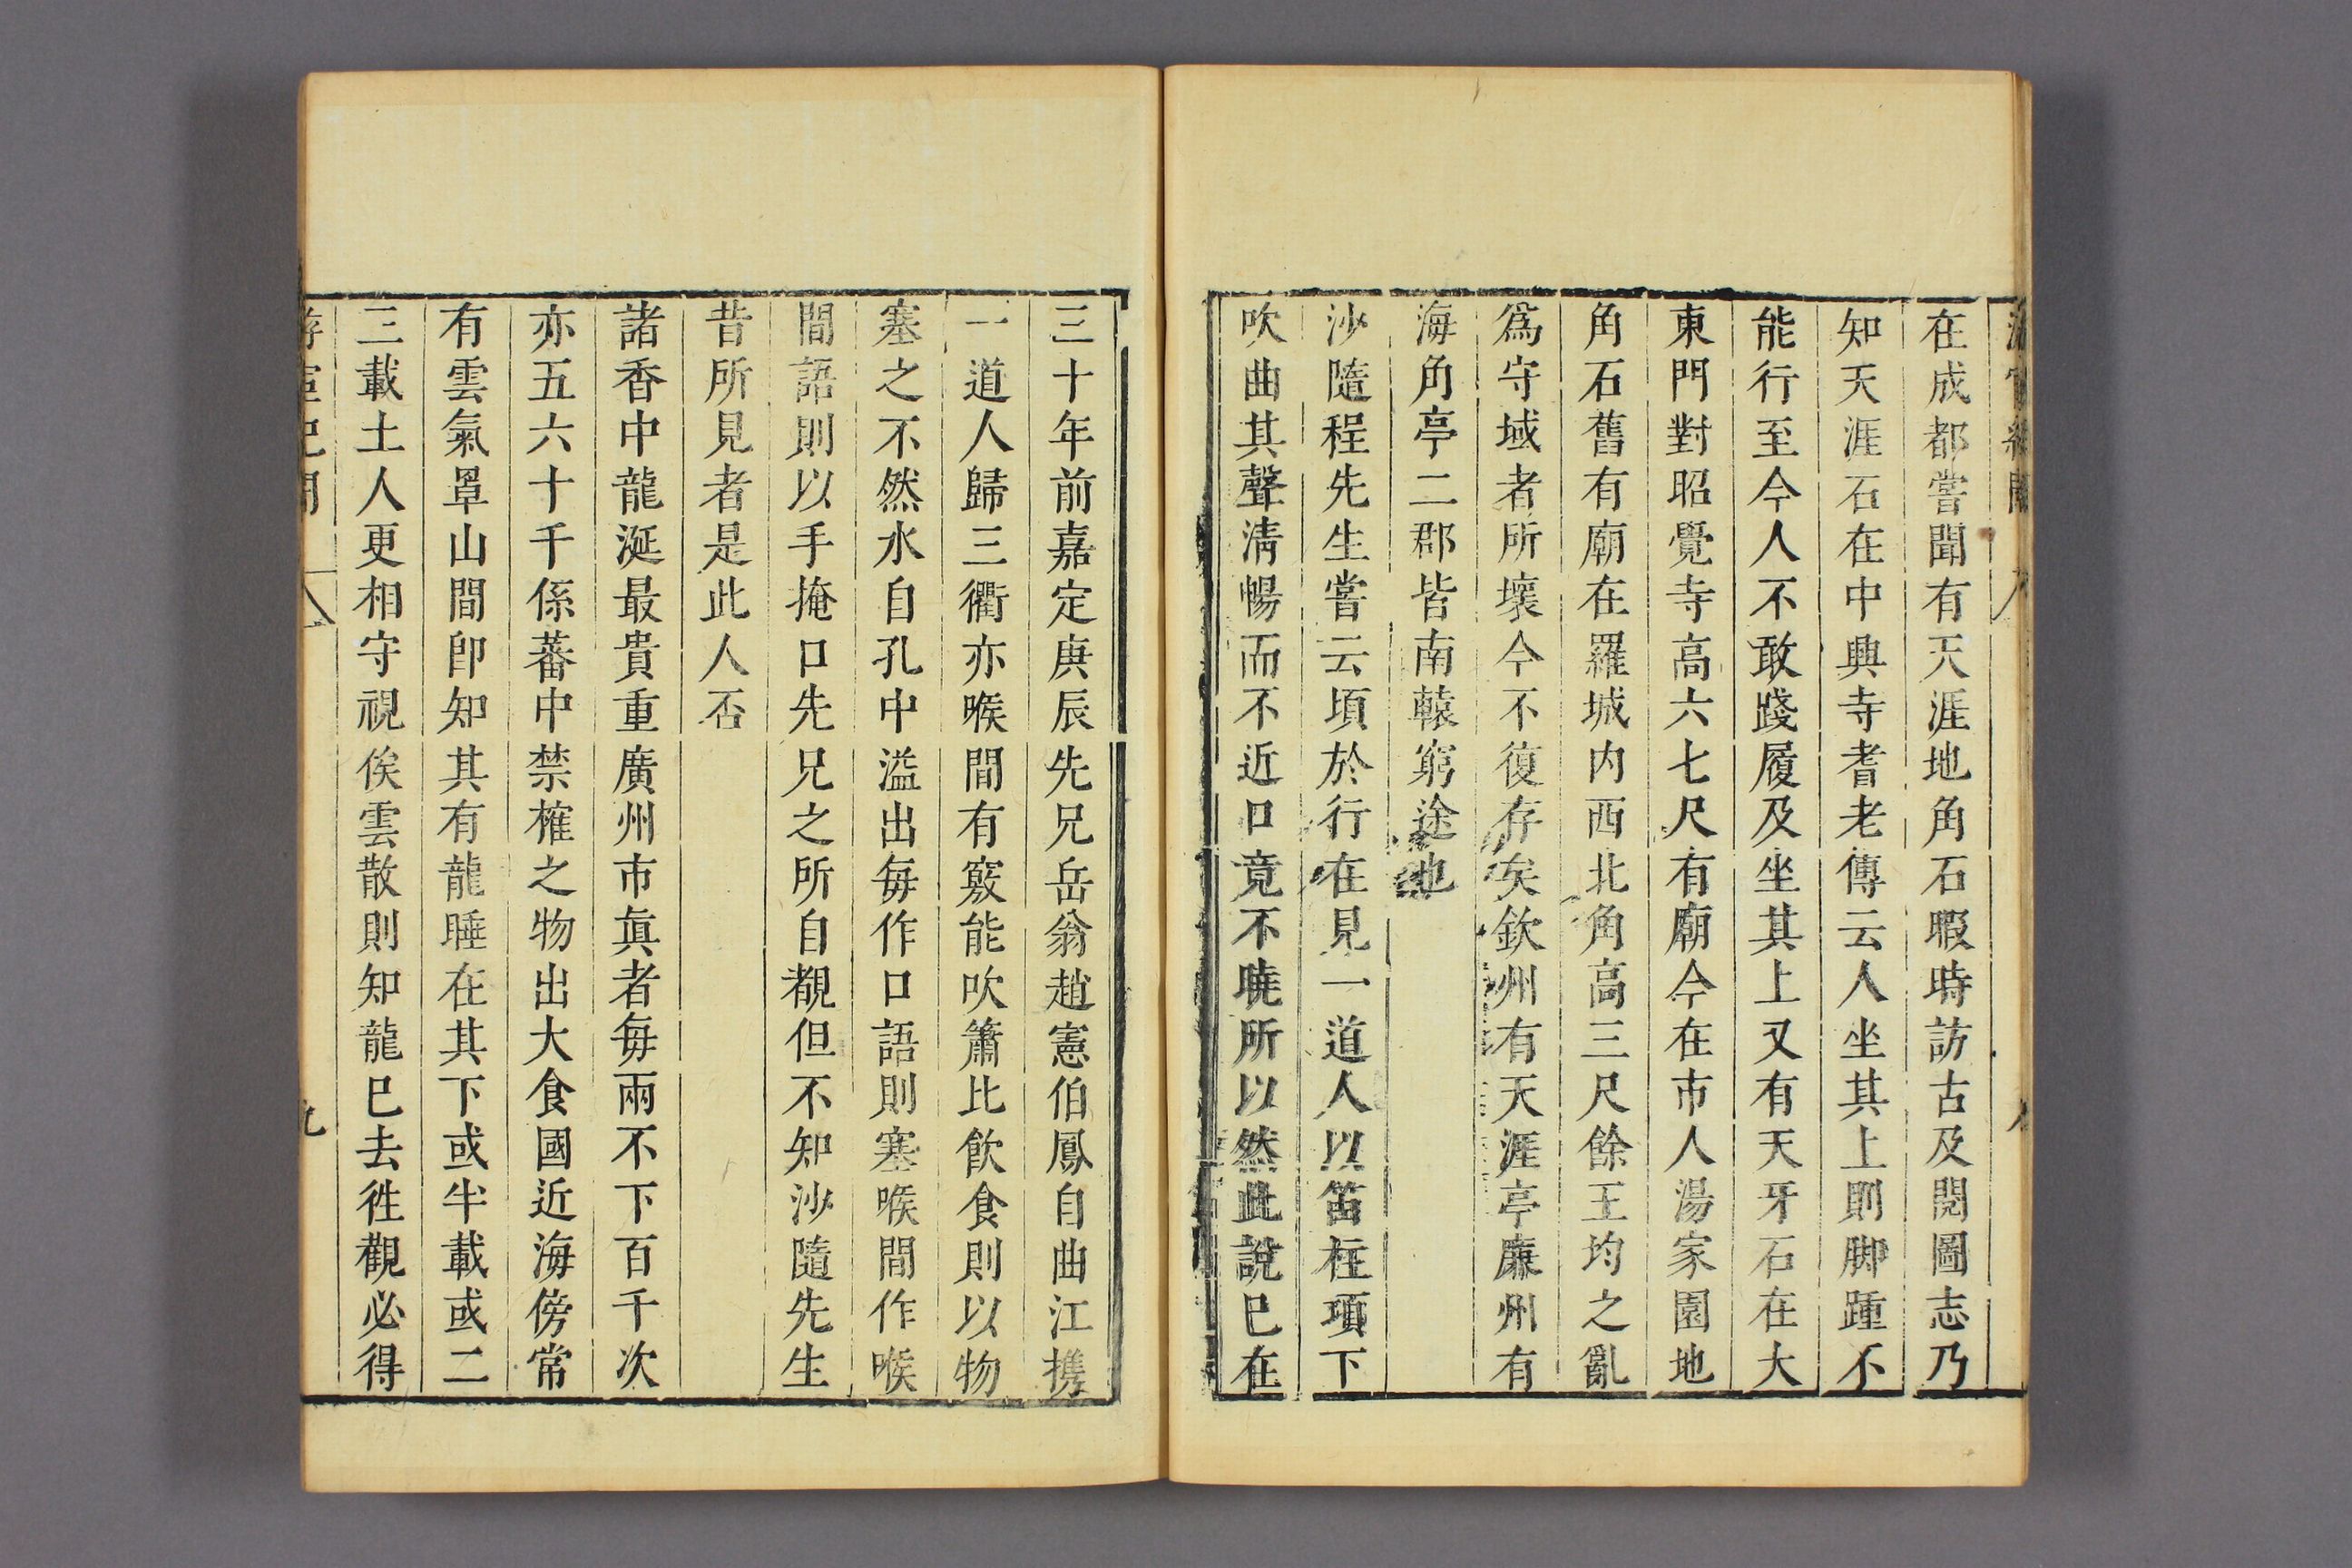 在成都嘗聞有天涯地角石暇時訪古及閱圖志乃
知天涯石在中興寺耆老傳云人坐其上則脚踵不
能行至今人不敢踐履及坐其上又有天牙石在大
東門對昭覺寺高六七尺有廟今在市人湯家園地
角石舊有廟在羅城内西北角高三尺餘王均之亂
爲守城者所壞今不復存矣欽州有天涯亭廉州有
海角亭二郡皆南轅窮途也
沙隨程先生嘗云頃於行在見一道人以笛柱項下
吹曲其聲淸暢而不近口竟不曉所以然此說已在
三十年前嘉定庚辰先兄岳翁趙憲伯鳳自曲江携
一道人歸三衢亦喉間有竅能吹簫比飲食則以物
塞之不然水自孔中溢出每作口語則塞喉間作喉
間語則以手掩口先兄之所自覩但不知沙隨先生
昔所見者是此人否
諸香中龍涎最貴重廣州市眞者每兩不下百千次
亦五六十千係蕃中禁榷之物出大食國近海傍常
有雲氣罩山間卽知其有龍睡在其下或半載或二
三載土人更相守視俟雲散則知龍已去徃觀必得
九